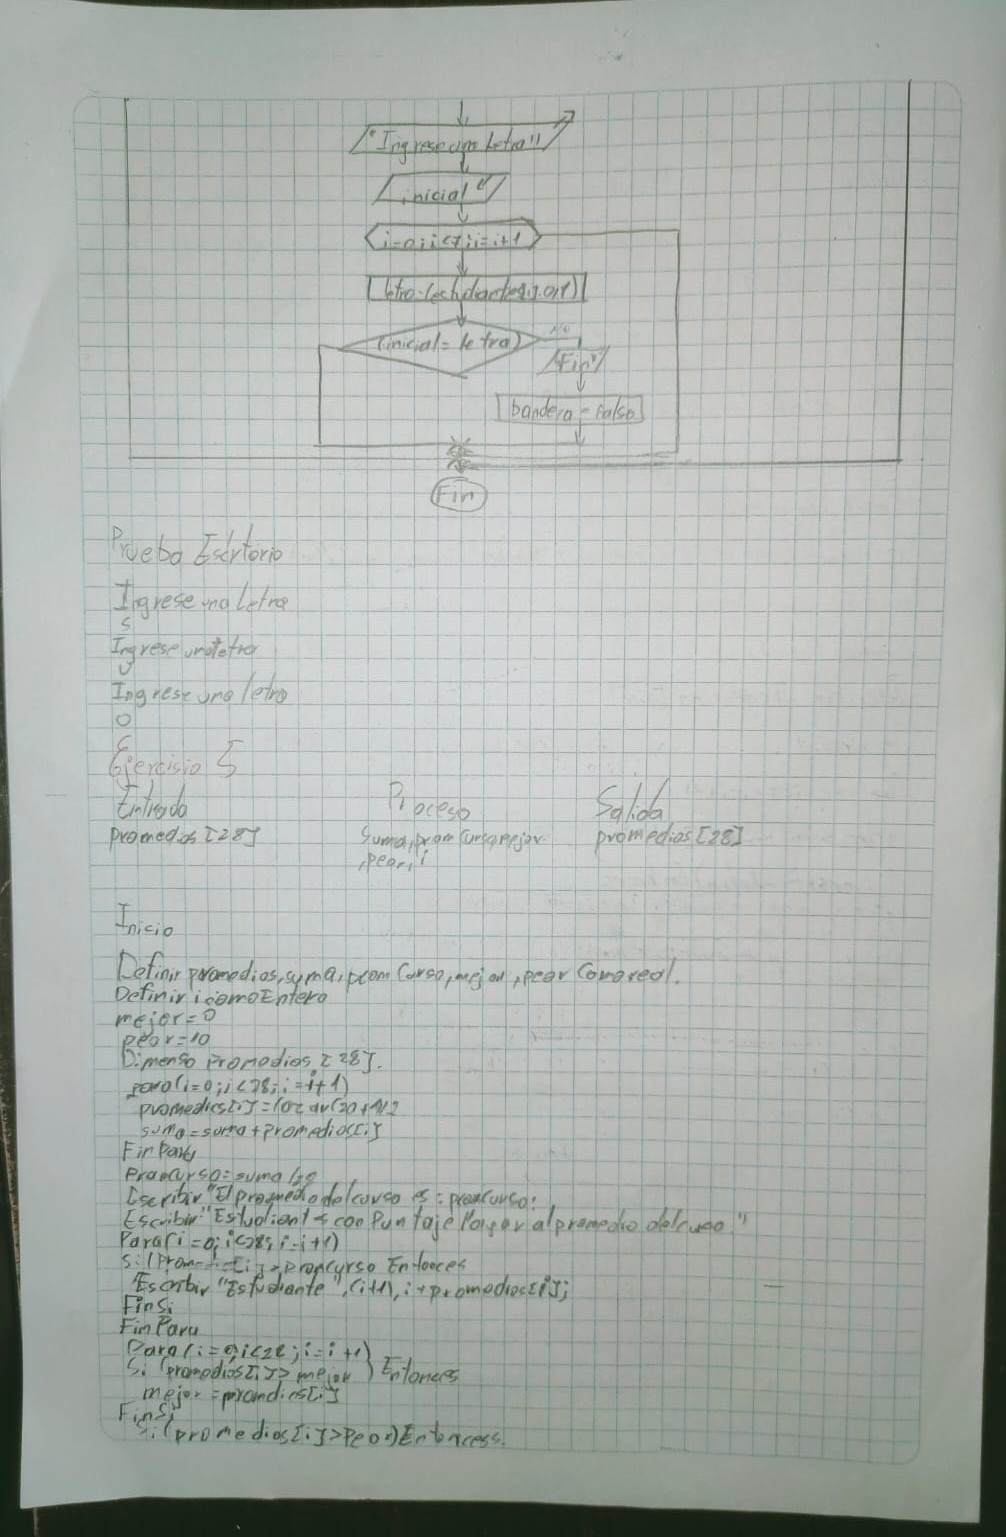 "Ingrese una Letra"
inicial
i=0;i<7;i=i+1
letra=(estudiantes[i].0,1)
(inicial=letra)
No
"Fin"
bandera=Falso
Fin
Prueba Escrtorio
Ingrese una Letra
s
Ingrese una letra
Ingrese una letra
o
Ejercisio 5
Entrada Proceso Salida
promedios [28] suma, prom Curso, mejor promedios [28]
,peor, i
Inicio
Definir promedios, suma, prom Curso, mejor, peor Como real.
Definir i como Entero
mejor=0
peor=10
Dimenso promedios [28].
para(i=0;i<28;i=i+1)
promedios[i]=
suma=suma+promedios[i]
Fin Para
Promcurso=suma/28
Escribir "El promedio del curso es: promcurso:
Escribir "Estudiantes con Puntaje Mayor al promedio del curso"
Para(i=0;i<28;i=i+1)
Si(Promedios[i]>promcurso Entonces
Escribir "Estudiante",(i+1), i+promedios[i];
FinSi
Fin Para
Para(i=0;i<28;i=i+1)
Si (promedios[i]>mejor) Entonces
mejor=promdios[i]
FinSi
Si(promedios[i]>Peor)Entoncess.